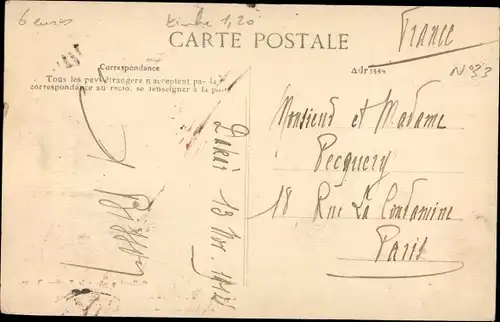 6 euros
timbre 1,20
France
CARTE POSTALE
Correspondance
Adresse
N°33
Tous les pays étrangers n'acceptent pas la
correspondance au recto, se renseigner à la poste
Monsieur et Madame
Pecquery
18 Rue La Condamine
Paris
Dakar 13 Nov.